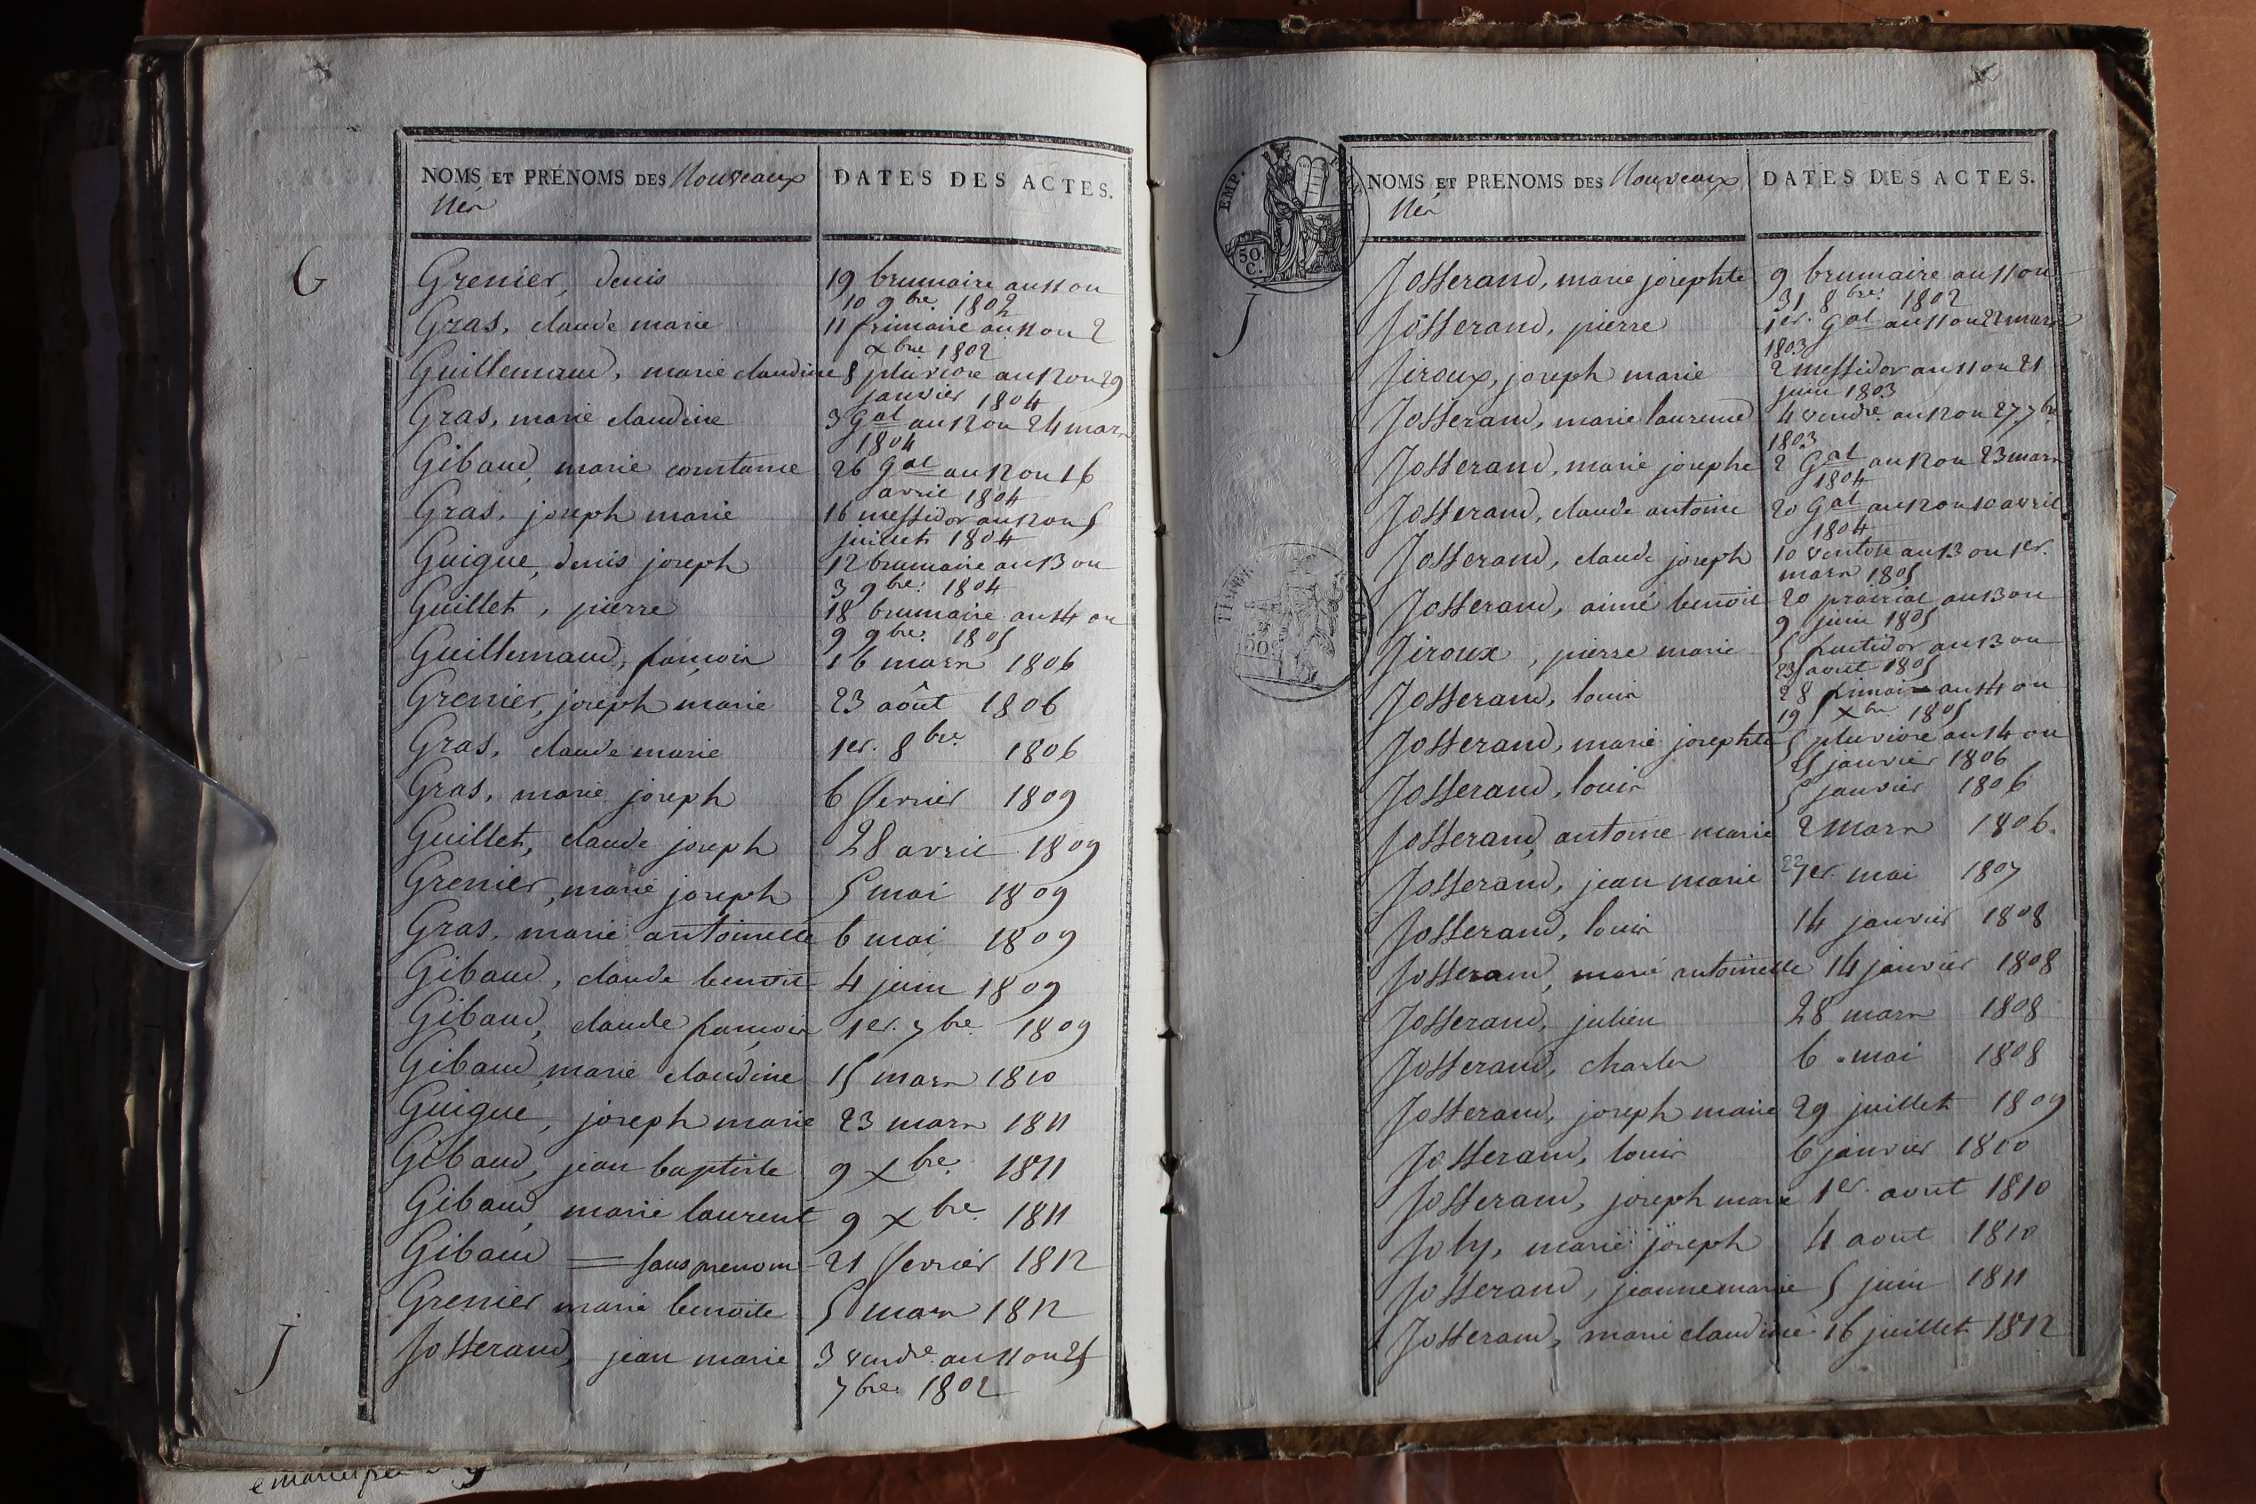 NOMS ET PRÉNOMS DES Nouveaux
Nés
DATES DES ACTES.
G
Grenier, denis 19 brumaire an 11 ou
10 9bre 1802
Gras, claude marie 11 frimaire an 11 ou 2
xbre 1802
Guillemaud, marie claudine 8 pluviose an 12 ou 29
janvier 1804
Gras, marie claudine 3 Gal an 12 ou 24 mars
1804
Gibaud, marie constance 26 Gal an 12 ou 16
avril 1804
Gras, joseph marie 16 messidor an 12 ou 5
juillet 1804
Guigue, denis joseph 12 brumaire an 13 ou
3 9bre 1804
Guillet, pierre 18 brumaire an 14 ou
9 9bre 1805
Guillemaud, françois 16 mars 1806
Grenier, joseph marie 23 août 1806
Gras, claude marie 1er. 8bre 1806
Gras, marie joseph 6 fevrier 1809
Guillet, claude joseph 28 avril 1809
Grenier, marie joseph 5 mai 1809
Gras, marie antoinette 6 mai 1809
Gibaud, claude benoit 4 juin 1809
Gibaud, claude françois 1er. 7bre 1809
Gibaud, marie claudine 15 mars 1810
Guigue, joseph marie 23 mars 1811
Gibaud, jean baptiste 9 xbre 1811
Gibaud, marie laurent 9 xbre 1811
Gibaud = sans prenom 21 fevrier 1812
Grenier marie benoite 5 mars 1812
J
Josserand, jean marie 3 vendre. an 11 ou 25
7bre 1802
EMP.
50
C.
NOMS ET PRENOMS DES Nouveaux
Nés
DATES DES ACTES.
J
Josserand, marie josephte 9 brumaire an 11 ou
31 8bre 1802
Josserand, pierre 1er. Gal an 11 ou 22 mars
1803
Jiroux, joseph marie 2 messidor an 11 ou 21
juin 1803
Josserand, marie laurence 4 vendre. an 12 ou 27 7bre
1803
Josserand, marie josephe 2 Gal an 12 ou 23 mars
1804
Josserand, claude antoine 20 Gal an 12 ou 10 avril
1804
Josserand, claude joseph 10 ventose an 13 ou 1er.
mars 1805
Josserand, aimé benoit 20 prairial an 13 ou
9 juin 1805
Jiroux, pierre marie 5 fructidor an 13 ou
23 aout 1805
Josserand, louis 28 frimaire an 14 ou
19 xbre 1805
Josserand, marie josephte 5 pluviose an 14 ou
25 janvier 1806
Josserand, louis 5 janvier 1806
Josserand, antoine marie 2 mars 1806.
Josserand, jean marie mai 1807
Josserand, louis 14 janvier 1808
Josserand, marie antoinette 14 janvier 1808
Josserand, julien 28 mars 1808
Josserand, charles 6 mai 1808
Josserand, joseph marie 29 juillet 1809
Josserand, louis 6 janvier 1810
Josserand, joseph marie 1er. aout 1810
Joly, marie joseph 4 aout 1810
Josserand, jeanne marie 5 juin 1811
Josserand, marie claudine 16 juillet 1812